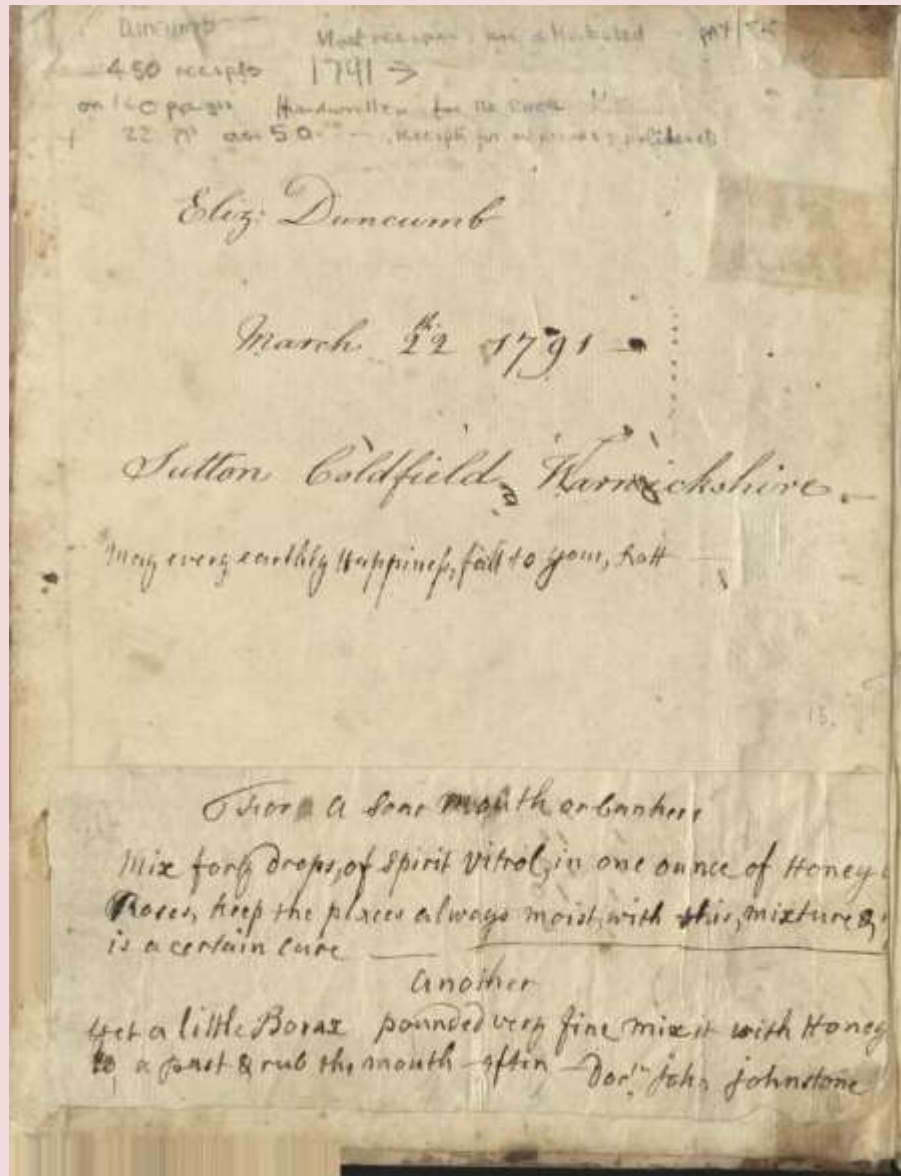 Duncumb
Most receipts are attributed
450 receipts 1791 →
on pages Handwritten for the
+ 22 50 receipts for
Eliz: Duncumb
March 22th 1791 —
Sutton Coldfield, Warwickshire. —
May every earthly Happiness, fall to your, Lott —
13.
For a Sore Mouth or Cankers
Mix forty drops, of Spirit Vitrol, in one ounce of Honey
Roses, keep the places always moist, with this, mixture &
is a certain Cure —
Another
Get a little Borax pounded very fine mix it with Honey
to a past & rub the mouth often — Dor. John Johnstone